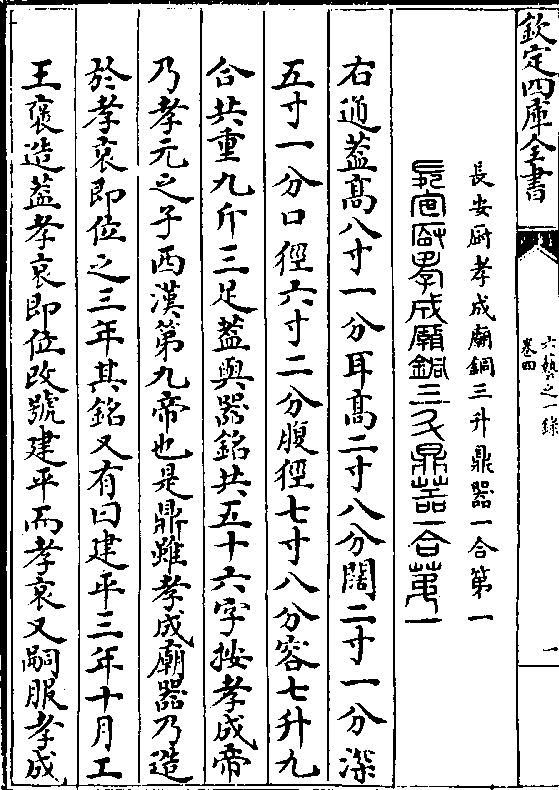 欽定四庫全書
六藝之一錄
卷四
一
長安厨孝成廟銅三升鼎器一合第一
長安厨孝成廟銅三升鼎器一合第一
右通葢高八寸一分耳高二寸八分闊二寸一分深
五寸一分口徑六寸二分腹徑七寸八分容七升九
合共重九斤三足葢與器銘共五十六字按孝成帝
乃孝元之子西漢第九帝也是鼎雖孝成廟器乃造
於孝哀即位之三年其銘又有曰建平三年十月工
王褒造葢孝哀即位改號建平而孝哀又嗣服孝成